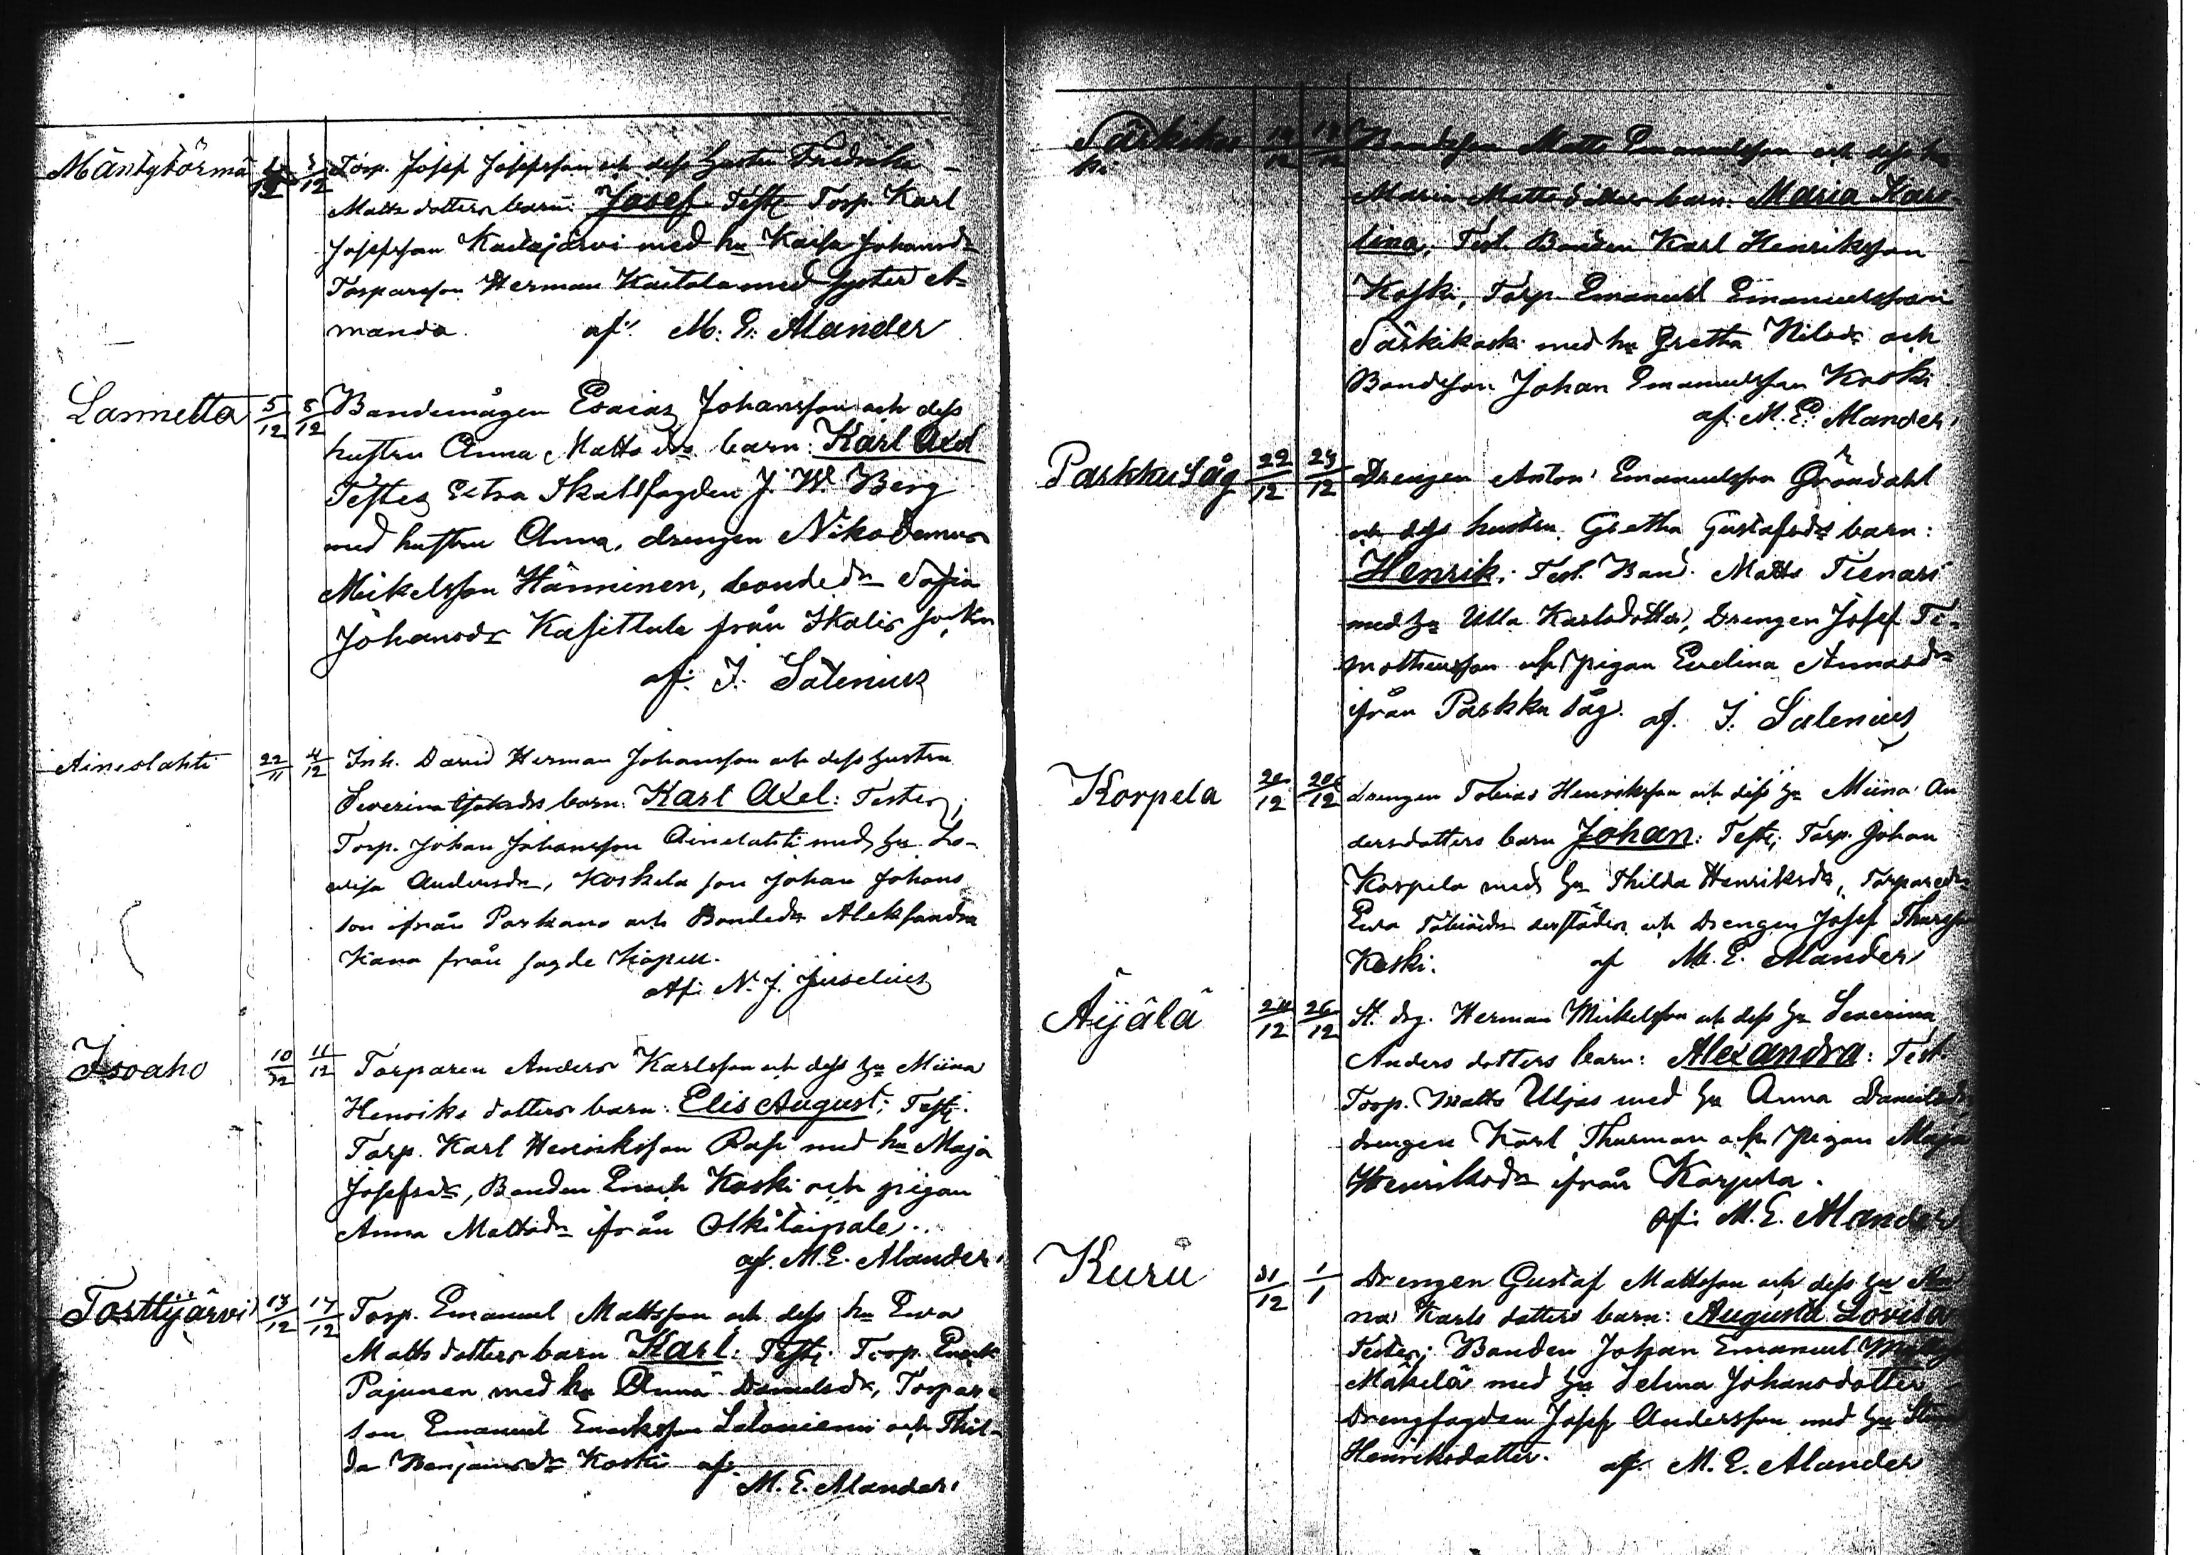 Mäntykörmä 2/12 3/12 Torp. Josef Josefsson och dess hustru Fredrika
Matts dotters barn: Josef Teste Torp. Karl
Josefsson Kaitajärvi med hu Kaisa Johansdr
Torparson Herman Kaitala med syster A-
manda. af: M. E. Alander
Lammetta 5/12 5/12 Bondemågen Esaias Johansson och dess
hustru Anna Matts drs barn: Karl Axel
Testes Extra Skallfogden J. W. Berg
med hustru Anna, drengen Nikodemus
Mikelsson Hänninen, bondedr Sofia
Johansdr Kasittula från Ikalis socken
af: I. Salenius
Aineslahti 22/11 4/12 Inh. David Herman Johansson och dess hustru
Severina barn: Karl Axel: Testes;
Torp. Johan Johansson Ainelahti med hu Lo-
visa Andersdr, Koskela son Johan Johans
son ifrån Parkano och Bondedr Aleksandra
Kana från sagde Kapell.
Af: N. J. Juselius
Isoaho 10/12 11/12 Torparen Anders Karlsson och dess hu Miina
Henriks dotters barn: Elis August; Teste.
Torp. Karl Henriksson Rasi med hu Maja
Josefsdr, Bonden Enoch Koski och pigan
Anna Mattsdr ifrån Olkitaipale.
af. M. E. Alander
Torttijärvi 13/12 17/12 Torp. Emanuel Mattsson och dess hu Eva
Matts dotters barn Karl: Teste; Torp. Enok
Pajunen med hu Anna Danielsdr, Torpare
son Emanuel Enoksson Saloniemi och Thil-
da Benjamsdr Koski af.
M. E. Alander
Särkikoski 14/12 Bondeson Matts Emanuelsson och dess hu
Maria Matts dotters barn: Maria Karo-
lina; Test. Bonden Karl Henriksson
Koski, Torp. Emanuel Emanuelsson
Särkikoski med hu Gretha Nilsdr och
Bondeson Johan Emanuelsson Koski
af: M. E. Alander
Parkku Såg 22/12 23/12 Drengen Anton Emanuelsson Gröndahl
och dess hustru Gretha Gustafsdr barn:
Henrik; Test. Bond. Matts Tienari
med hu Ulla Karlsdotter, Drengen Josef Ti-
motheusson och pigan Evelina Annasdr
ifrån Parkku såg. af. I. Salenius
Korpela 20/12 20/12 drengen Tobias Henriksson och dess hu Miina An
dersdotters barn Johan: Teste; Torp. Johan
Korpela med hu Thilda Henriksdr, Torparedr
Eva Tobiasdr derstädes och Drengen Josef
Koski. af M. E. Alander
Äijälä 24/12 26/12 St. drg. Herman Mickelsson och dess hu Severina
Anders dotters barn: Alexandra: Test.
Torp. Matts Uljas med hu Anna Danielsdr,
drengen Karl Thurman och pigan Maja
Henriksdr ifrån Korpela.
af: M. E. Alander
Kuru 31/12 1/1 Drengen Gustaf Mattsson och dess hu An
na Karls dotters barn: Augusta Lovisa
Testes; Bonden Johan Emanuel
Mäkelä med hu Selma Johansdotter
Drengfogden Josef Andersson med hu Stina
Henriksdotter. af. M. E. Alander